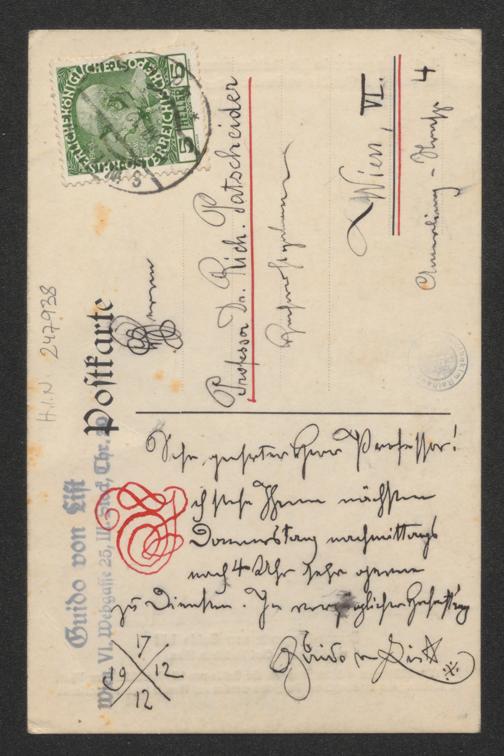 Postkarte
Herrn
Professor Dr. Rich. Patscheider
Wien, VI.
4
H.I.N. 247938
Guido von List
Wien VI, Webgasse 25, III. Stock, Thr.
Sehr geehrter Herr Professor!
Ich stehe Ihnen nächsten
Donnerstag nachmittags
nach 4 Uhr sehr gerne
zu Diensten. In vorzüglicher Hochachtung
Guido v List
17
19 12
12